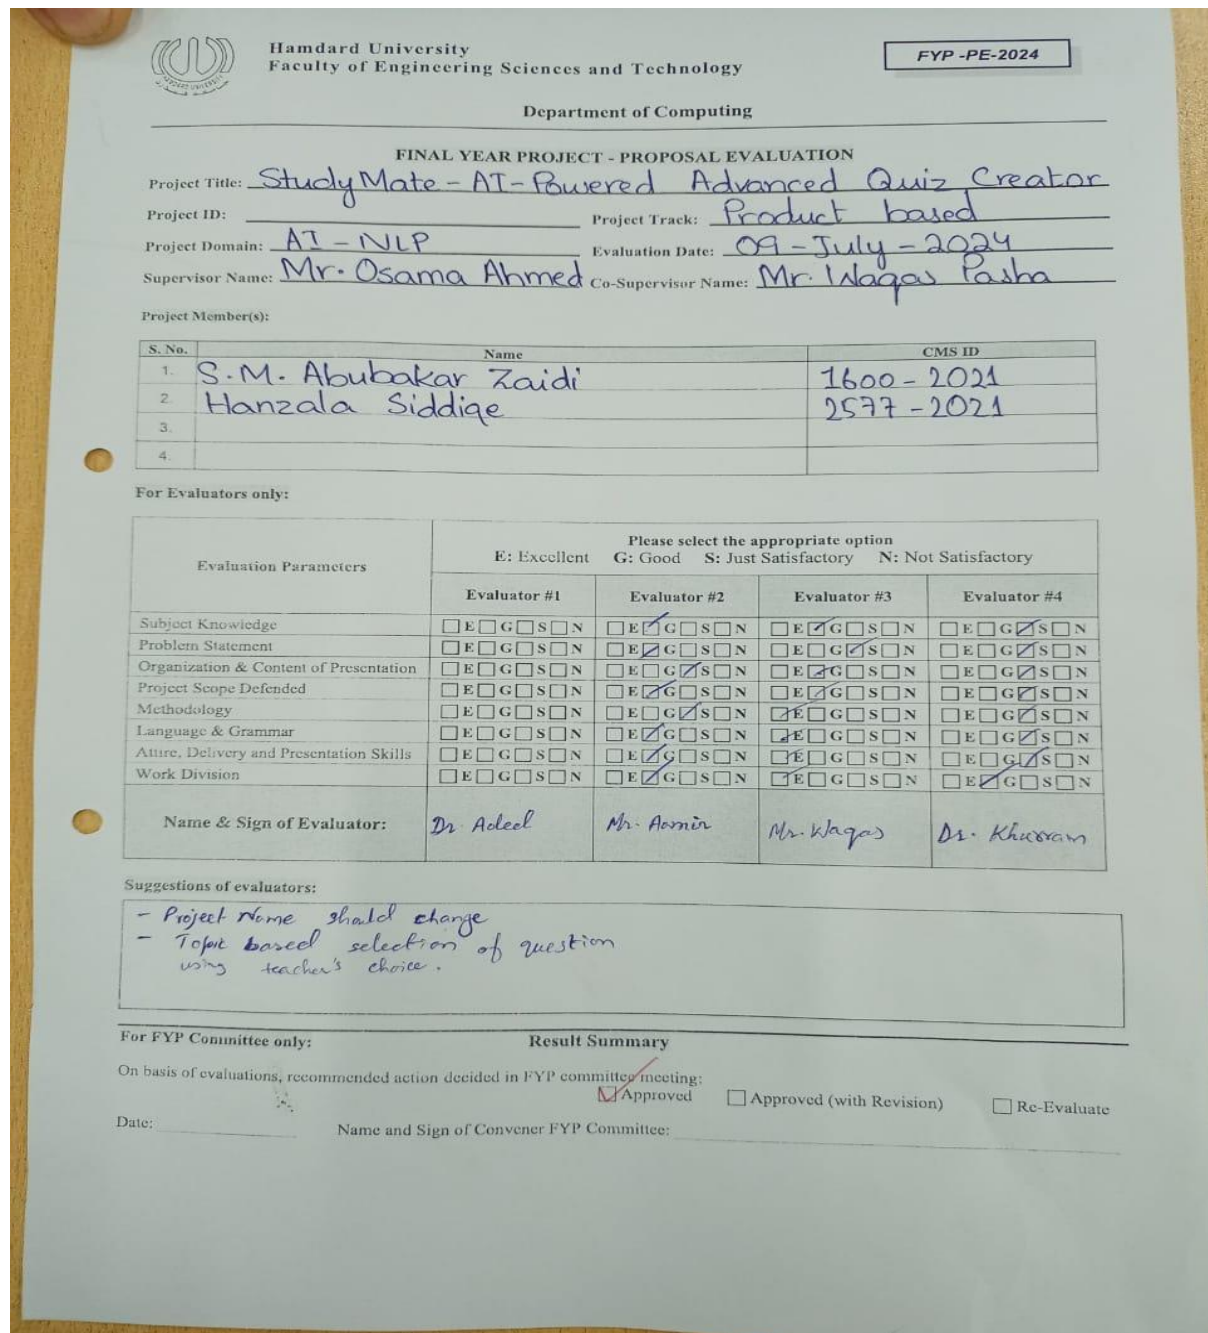 Hamdard University
Faculty of Engineering Sciences and Technology
FYP -PE-2024
Department of Computing
FINAL YEAR PROJECT - PROPOSAL EVALUATION
Project Title: StudyMate - AI-Powered Advanced Quiz Creator
Project ID:
Project Track: Product based
Project Domain: AI - NLP
Evaluation Date: 09 - July - 2024
Supervisor Name: Mr. Osama Ahmed
Co-Supervisor Name: Mr. Waqas Pasha
Project Member(s):
S. No. Name CMS ID
1. S.M. Abubakar Zaidi 1600 - 2021
2. Hanzala Siddiqe 2577 - 2021
3.
4.
For Evaluators only:
Evaluation Parameters
Please select the appropriate option
E: Excellent G: Good S: Just Satisfactory N: Not Satisfactory
Evaluator #1 Evaluator #2 Evaluator #3 Evaluator #4
Subject Knowledge E G S N E G S N E G S N E G S N
Problem Statement E G S N E G S N E G S N E G S N
Organization & Content of Presentation E G S N E G S N E G S N E G S N
Project Scope Defended E G S N E G S N E G S N E G S N
Methodology E G S N E G S N E G S N E G S N
Language & Grammar E G S N E G S N E G S N E G S N
Attire, Delivery and Presentation Skills E G S N E G S N E G S N E G S N
Work Division E G S N E G S N E G S N E G S N
Name & Sign of Evaluator: Dr. Adeel Mr. Aamir Mr. Waqas Dr. Khurram
Suggestions of evaluators:
- Project Name should change
- Topic based selection of question
using teacher's choice.
For FYP Committee only:
Result Summary
On basis of evaluations, recommended action decided in FYP committee meeting:
Approved Approved (with Revision) Re-Evaluate
Date:
Name and Sign of Convener FYP Committee: